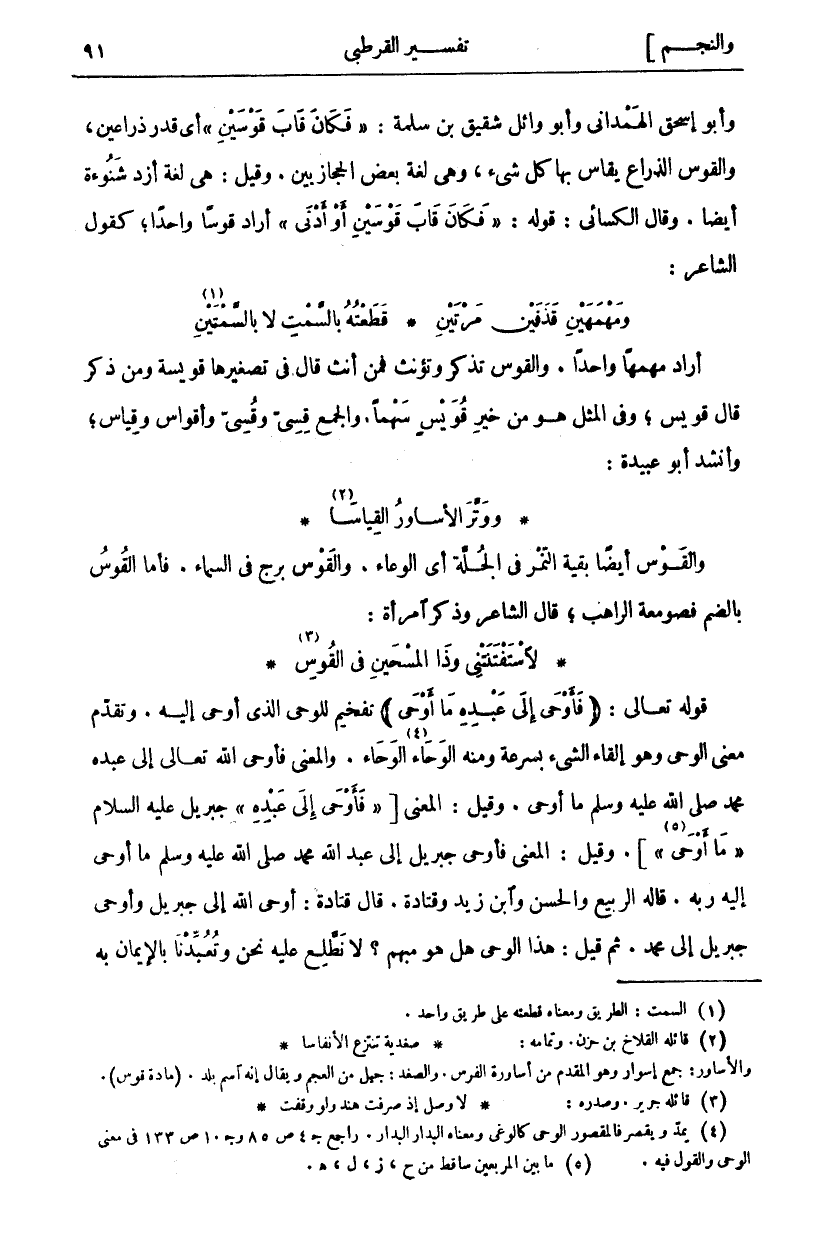 والنجــم ]
تفســـير القرطبي
٩١
وأبو إسحق الهَمْدانى وأبو وائل شقيق بن سلمة : « فَكَانَ قَابَ قَوْسَيْنِ » أى قدر ذراعين،
والقوس الذراع يقاس بها كل شىء ، وهى لغة بعض الحجازيين . وقيل : هى لغة أزد شَنُوءة
أيضا . وقال الكسائى : قوله : « فَكَانَ قَابَ قَوْسَيْنِ أَوْ أَدْنَى » أراد قوسًا واحدًا؛ كقول
الشاعر :
ومَهْمَهَيْنِ قَذَفَيْنِ مَرْتَيْنِ * قَطَعْتُهُ بالسَّمْتِ لا بالسَّمْتَيْنِ (١)
أراد مهمهًا واحدًا . والقوس تذكر وتؤنث فمن أنث قال فى تصغيرها قويسة ومن ذكر
قال قويس ؛ وفى المثل هــو من خيرِ قُوَيْسٍ سَهْماً. والجمع قِسِىّ وقُسِىّ وأقواس وقِياس؛
وأنشد أبو عبيدة :
* ووَتَّرَ الأســاوِرُ القِياسَــا (٢) *
والقَــوْس أيضًا بقية التّمْر فى الجُــلّة أى الوعاء . والقَوْس برج فى السماء . فأما القُوسُ
بالضم فصومعة الراهب ؛ قال الشاعر وذكر ٱمرأة :
* لَاسْتَفْتَنَتْنِى وذَا المِسْحَيْنِ فى القُوسِ (٣) *
قوله تعــالى : ﴿ فَأَوْحَى إِلَى عَبْــدِهِ مَا أَوْحَى ﴾ تفخيم للوحى الذى أوحى إليــه . وتقدّم
معنى الوحى وهو إلقاء الشىء بسرعة ومنه الوَحَاء الوَحَاء (٤) . والمعنى فأوحى الله تعــالى إلى عبده
محمد صلى الله عليه وسلم ما أوحى . وقيل : المعنى [ « فَأَوْحَى إِلَى عَبْدِهِ » جبريل عليه السلام
« مَا أَوْحَى » ] (٥) . وقيل : المعنى فأوحى جبريل إلى عبد الله محمد صلى الله عليه وسلم ما أوحى
إليه ربه . قاله الربيع والحسن وٱبن زيد وقتادة . قال قتادة : أوحى الله إلى جبريل وأوحى
جبريل إلى محمد . ثم قيل : هذا الوحى هل هو مبهم ؟ لا نَطَّلِع عليه نحن وتُعُبِّدْنَا بالإيمان به
(١) السمت : الطريق ومعناه قطعته على طريق واحد .
(٢) قائله القلاخ بن حزن . وتمامه : * صغدية تنتزع الأنفاسا *
والأساور: جمع إسوار وهو المقدم من أساورة الفرس . والصغد : جيل من العجم ويقال إنه ٱسم بلد . (مادة قوس).
(٣) قائله جرير . وصدره : * لا وصل إذ صرفت هند ولو وقفت *
(٤) يمدّ ويقصر فالمقصور الوحى كالوغى ومعناه البدار البدار . راجع جـ ٤ ص ٨٥ وجـ ١٠ ص ١٣٣ فى معنى
الوحى والقول فيه . (٥) ما بين المربعين ساقط من ح ، ز ، ل ، ه .